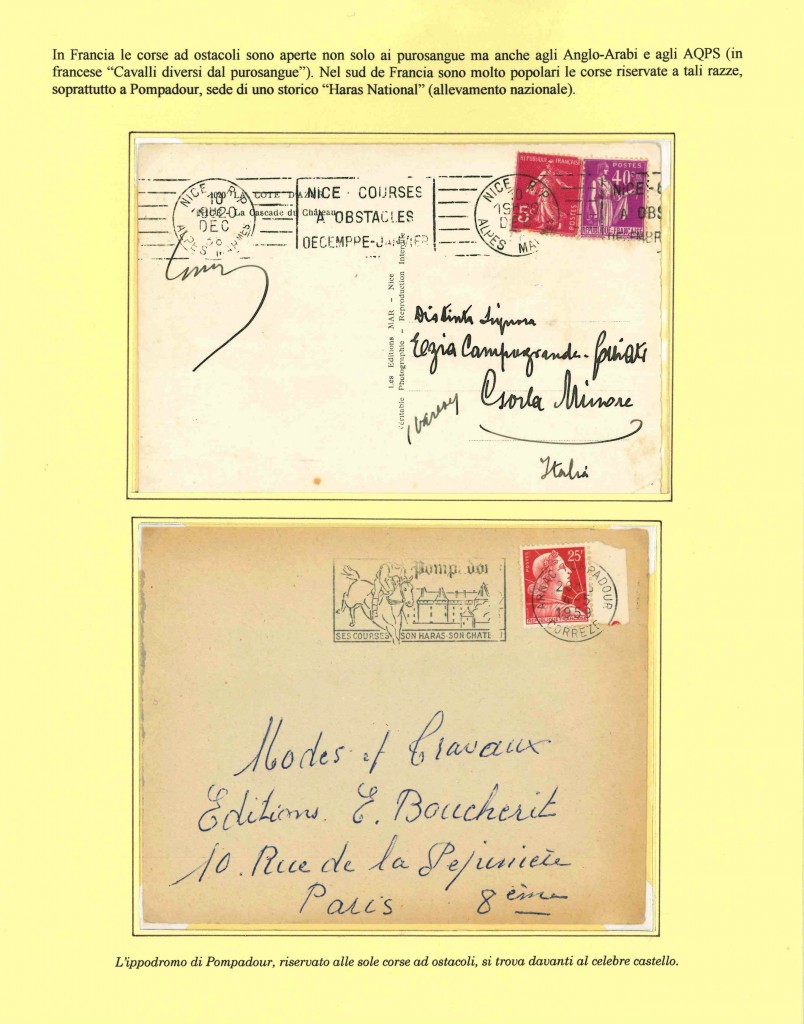 In Francia le corse ad ostacoli sono aperte non solo ai purosangue ma anche agli Anglo-Arabi e agli AQPS (in
francese “Cavalli diversi dal purosangue”). Nel sud de Francia sono molto popolari le corse riservate a tali razze,
soprattutto a Pompadour, sede di uno storico “Haras National” (allevamento nazionale).
NICE R.P.
10
DEC
ALPES MARMES
LA COTE D'AZUR
La Cascade du Château
NICE - COURSES
A OBSTACLES
DECEMBRE-JANVIER
REPUBLIQUE FRANÇAISE
5c
POSTES
POSTES
40c
REPUBLIQUE FRANÇAISE
NICE R.P.
ALPES MA
NICE-
A OBS
Les Editions MAR - Nice
Véritable Photographie - Reproduction Interdite
Distinta Signora
Ezia Campogrande
Minore
Italia
Pompadou
SES COURSES SON HARAS-SON CHATE
POSTES
25F
REPUBLIQUE FRANÇAISE
PADOUR
1959
CORREZE
Modes et Travaux
Editions E. Boucherit
10. Rue de la Pépinière
Paris 8ème
L'ippodromo di Pompadour, riservato alle sole corse ad ostacoli, si trova davanti al celebre castello.